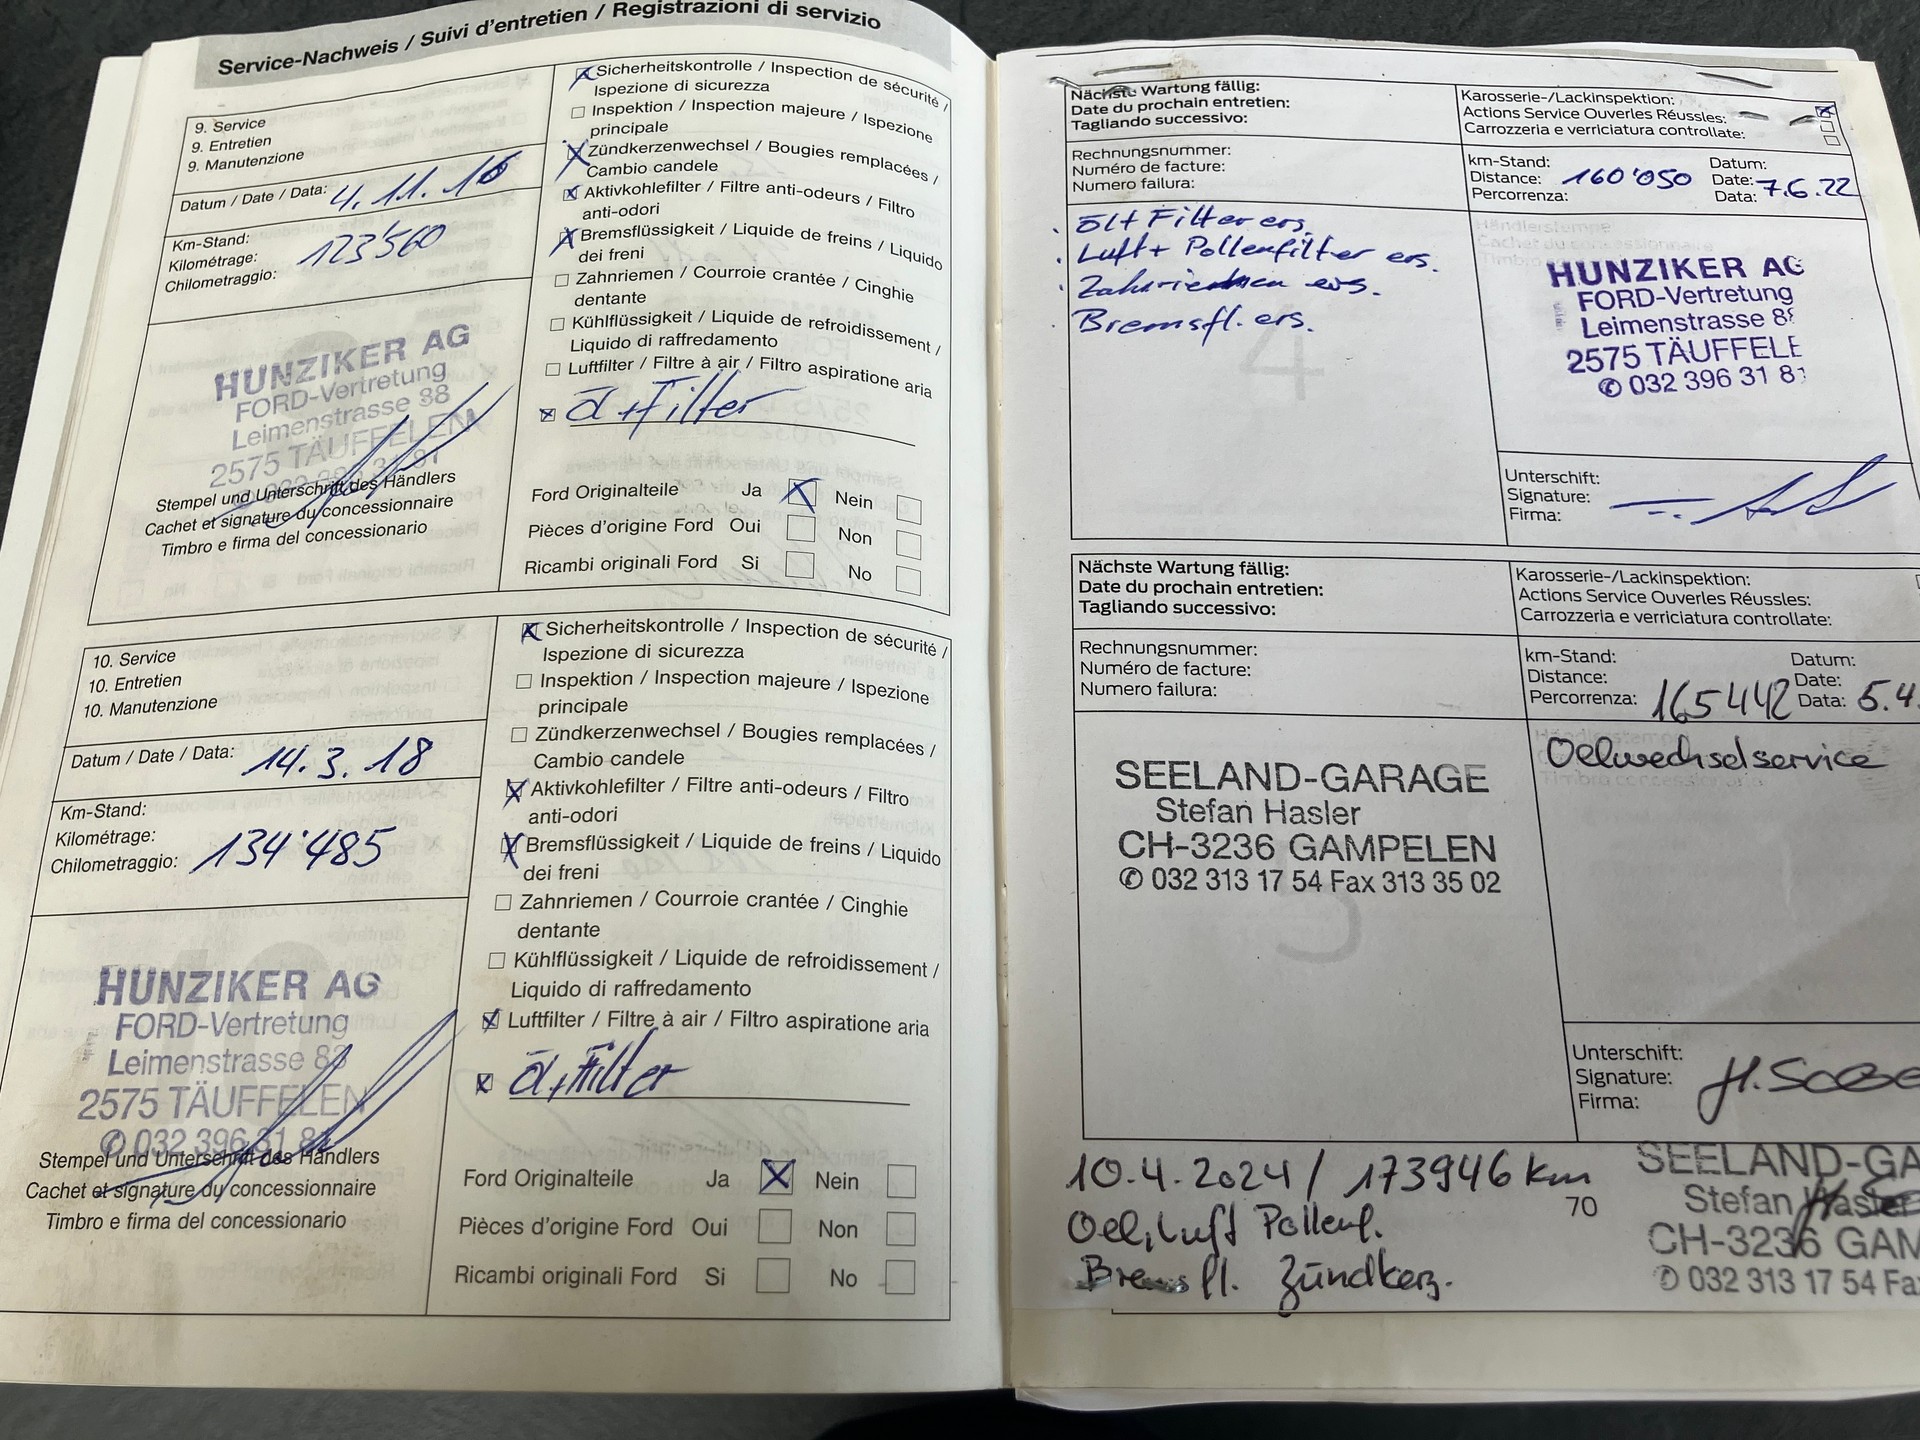 Service-Nachweis / Suivi d'entretien / Registrazioni di servizio
9. Service
9. Entretien
9. Manutenzione
Datum / Date / Data: 4.11.16
Km-Stand:
Kilométrage: 123'560
Chilometraggio:
HUNZIKER AG
FORD-Vertretung
Leimenstrasse 88
2575 TÄUFFELEN
Stempel und Unterschrift des Händlers
Cachet et signature du concessionnaire
Timbro e firma del concessionario
Sicherheitskontrolle / Inspection de sécurité /
Ispezione di sicurezza
Inspektion / Inspection majeure / Ispezione
principale
Zündkerzenwechsel / Bougies remplacées /
Cambio candele
Aktivkohlefilter / Filtre anti-odeurs / Filtro
anti-odori
Bremsflüssigkeit / Liquide de freins / Liquido
dei freni
Zahnriemen / Courroie crantée / Cinghie
dentante
Kühlflüssigkeit / Liquide de refroidissement /
Liquido di raffredamento
Luftfilter / Filtre à air / Filtro aspiratione aria
+ Filter
Ford Originalteile Ja Nein
Pièces d'origine Ford Oui Non
Ricambi originali Ford Si No
10. Service
10. Entretien
10. Manutenzione
Datum / Date / Data: 14.3.18
Km-Stand:
Kilométrage:
Chilometraggio: 134'485
HUNZIKER AG
FORD-Vertretung
Leimenstrasse 88
2575 TÄUFFELEN
✆ 032 396 31 81
Stempel und Unterschrift des Händlers
Cachet et signature du concessionnaire
Timbro e firma del concessionario
Sicherheitskontrolle / Inspection de sécurité /
Ispezione di sicurezza
Inspektion / Inspection majeure / Ispezione
principale
Zündkerzenwechsel / Bougies remplacées /
Cambio candele
Aktivkohlefilter / Filtre anti-odeurs / Filtro
anti-odori
Bremsflüssigkeit / Liquide de freins / Liquido
dei freni
Zahnriemen / Courroie crantée / Cinghie
dentante
Kühlflüssigkeit / Liquide de refroidissement /
Liquido di raffredamento
Luftfilter / Filtre à air / Filtro aspiratione aria
+ Filter
Ford Originalteile Ja Nein
Pièces d'origine Ford Oui Non
Ricambi originali Ford Si No
Nächste Wartung fällig:
Date du prochain entretien:
Tagliando successivo:
Karosserie-/Lackinspektion:
Actions Service Ouverles Réussles:
Carrozzeria e verriciatura controllate:
Rechnungsnummer:
Numéro de facture:
Numero failura:
km-Stand: Datum:
Distance: 160'050 Date: 7.6.22
Percorrenza: Data:
Öl + Filter ers.
Luft + Pollenfilter ers.
Zahnriemen ers.
Bremsfl. ers.
4
Händlerstempe
Cachet du concessionnaire
HUNZIKER AG
FORD-Vertretung
Leimenstrasse 88
2575 TÄUFFELE
✆ 032 396 31 81
Unterschift:
Signature:
Firma:
Nächste Wartung fällig:
Date du prochain entretien:
Tagliando successivo:
Karosserie-/Lackinspektion:
Actions Service Ouverles Réussles:
Carrozzeria e verriciatura controllate:
Rechnungsnummer:
Numéro de facture:
Numero failura:
km-Stand: Datum:
Distance: Date:
Percorrenza: 165442 Data: 5.4.
SEELAND-GARAGE
Stefan Hasler
CH-3236 GAMPELEN
✆ 032 313 17 54 Fax 313 35 02
5
Oelwechselservice
Unterschift:
Signature:
Firma:
10.4.2024 / 173946 km
Oel, Luft Pollenf.
Bremsfl. Zündkerz.
70
SEELAND-GA
Stefan Hasler
CH-3236 GAM
✆ 032 313 17 54 Fa